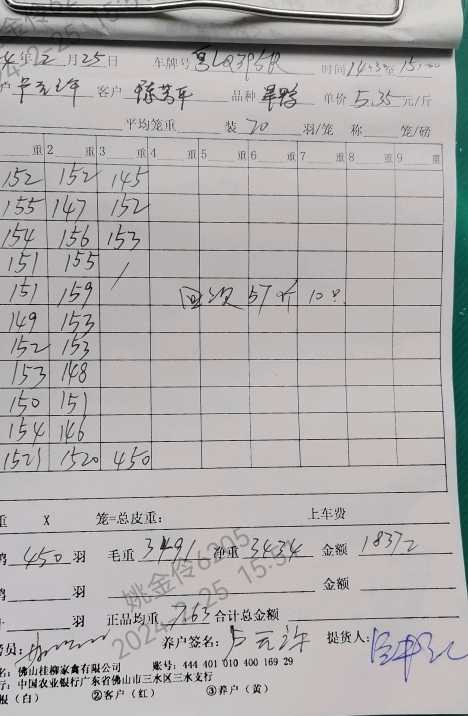 4年12月25日 车牌号粤LQ395R 时间14:30至15:
户 卢云许 客户 品种 单价5.35元/斤
平均笼重 装20羽/笼 称 笼/磅
重 2 重 3 重 4 重 5 重 6 重 7 重 8 重 9 重
152 152 145
155 147 152
154 156 153
151 155 /
151 159 回收57斤10只
149 153
152 153
153 148
150 151
154 146
1521 1520 450
重 X 笼=总皮重: 上车费
鸭450羽 毛重3491 净重3434 金额18372
鸭 羽 金额
羽 正品均重7.63合计总金额
员: 养户签名:卢云许 提货人:
名:佛山桂柳家禽有限公司 账号:444 401 010 400 169 29
行:中国农业银行广东省佛山市三水区三水支行
根(白) ②客户(红) ③养户(黄)
姚金伶6205
2024-12-25 15:5